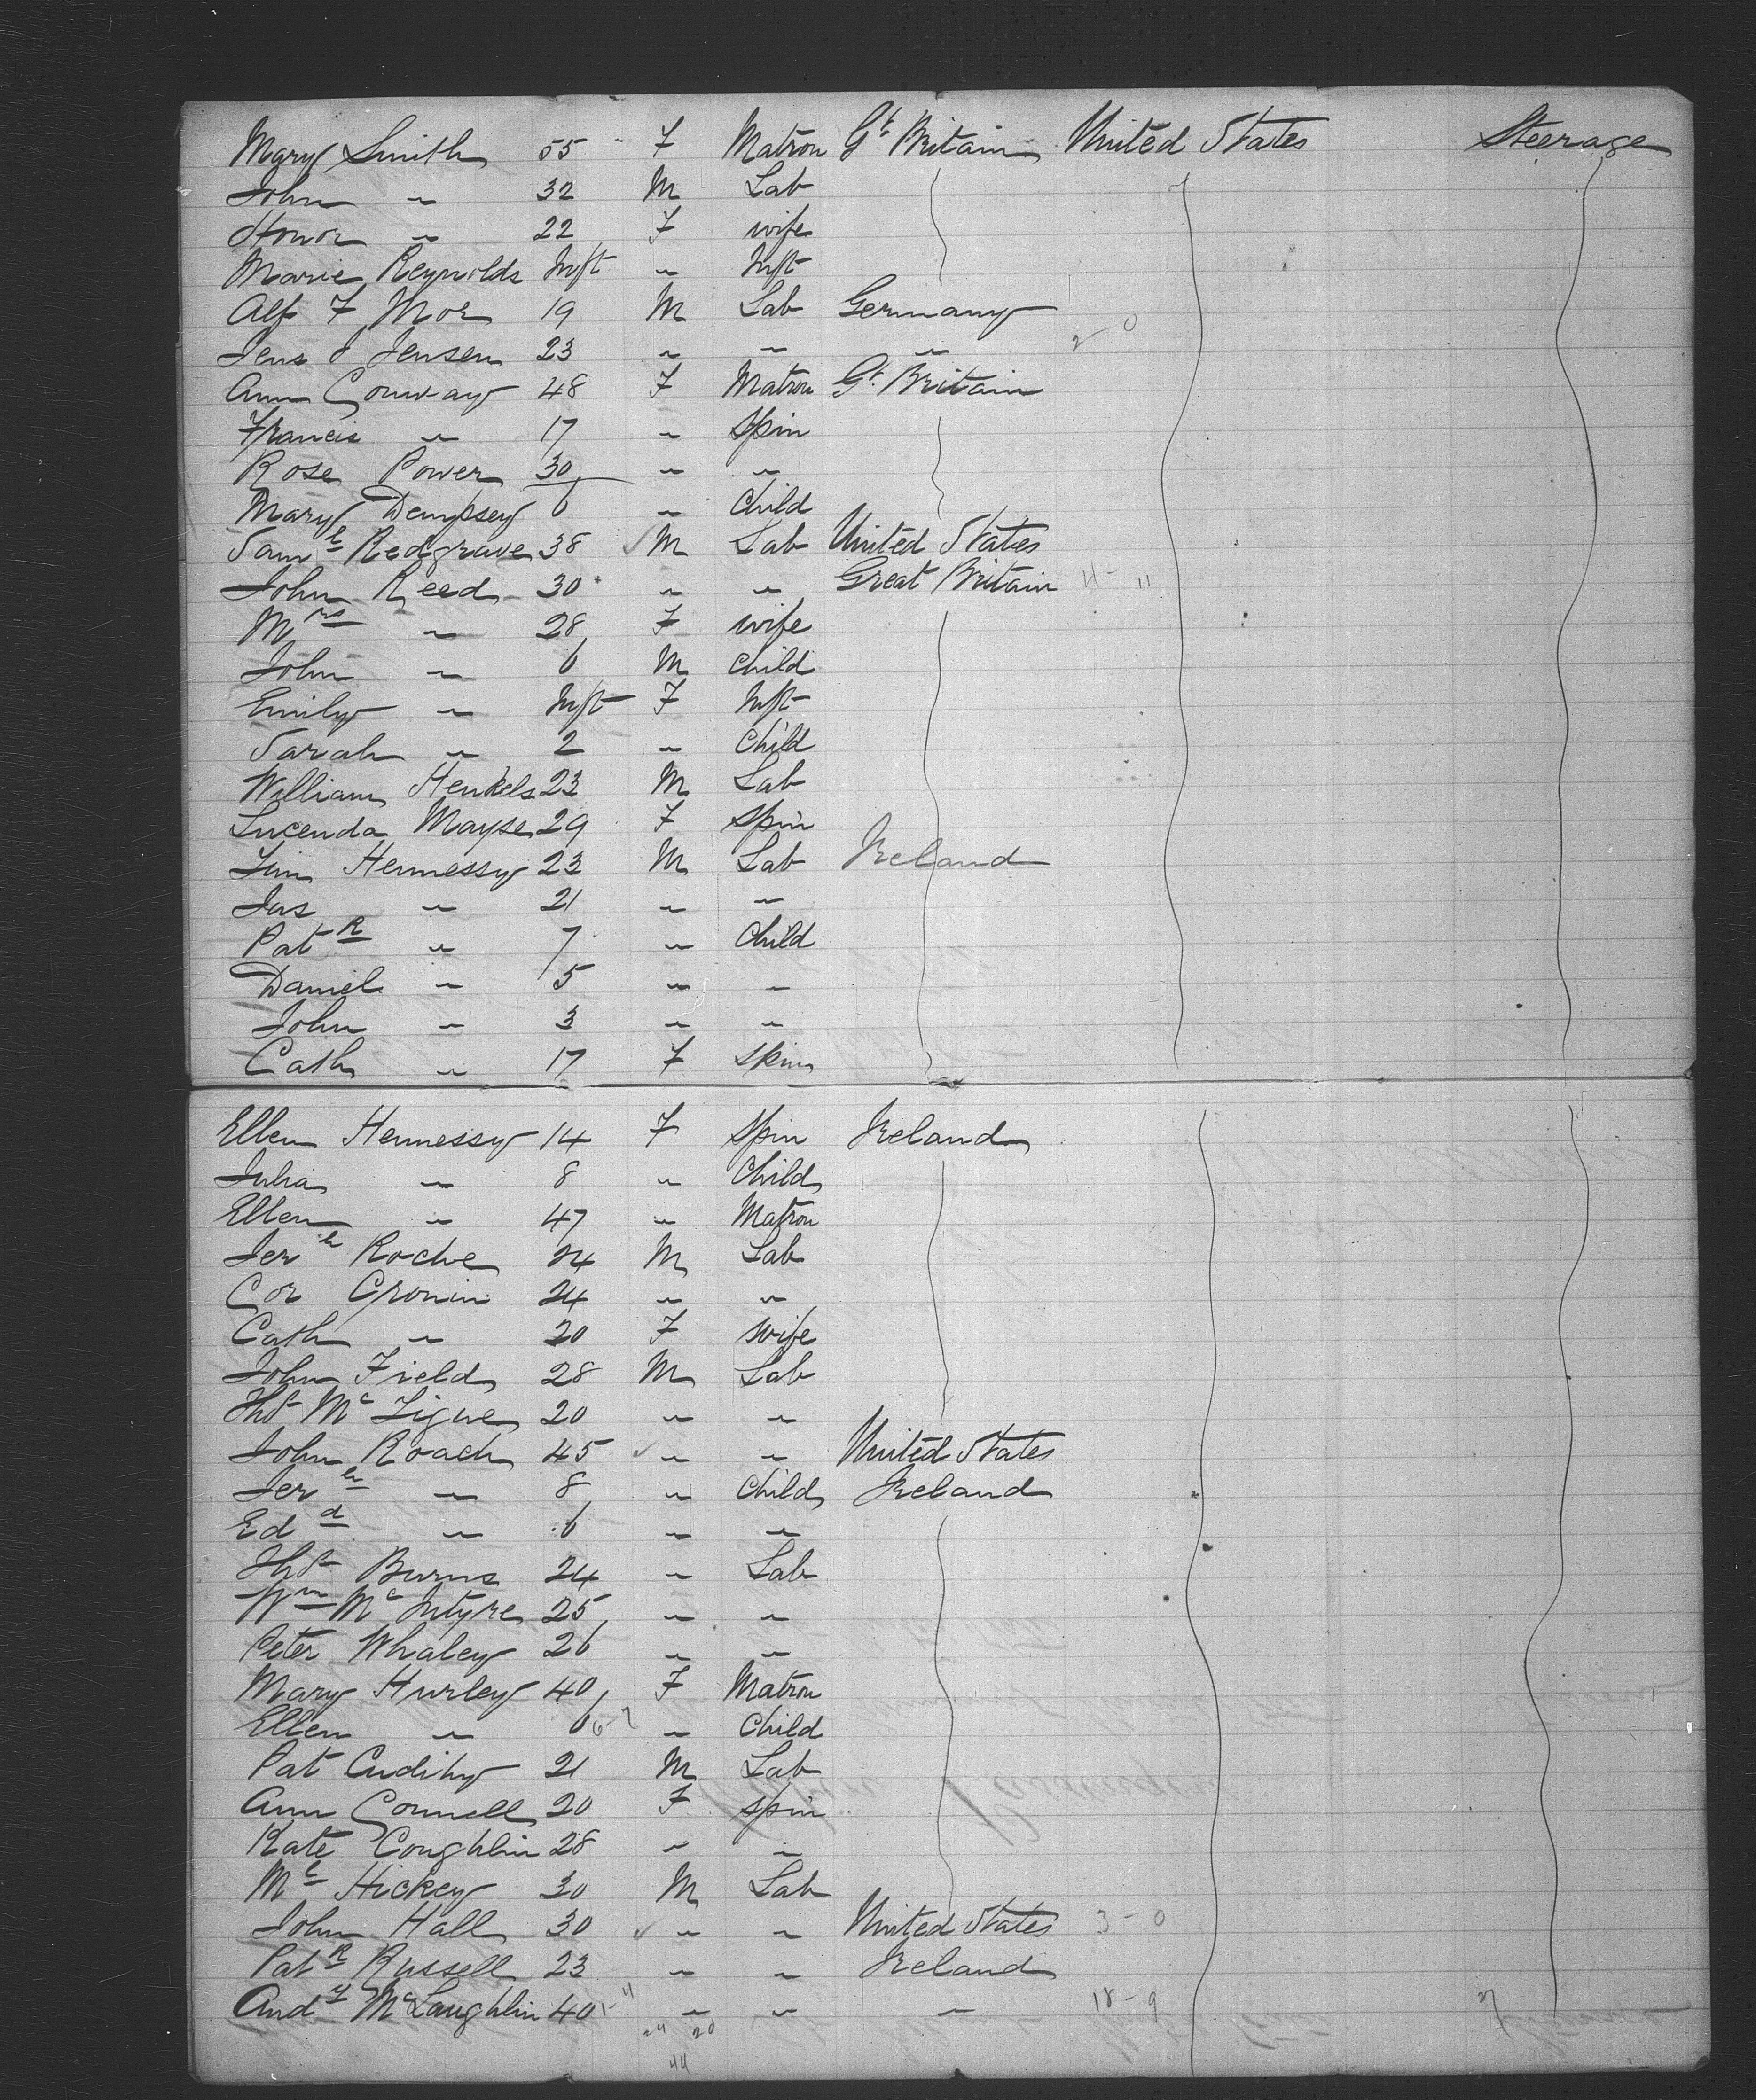 Mary Smith 55 F Matron Gt Britain United States Steerage
John " 32 M Lab
Honor " 22 F wife
Marie Reynolds Inft " Inft
Alf F Mor 19 M Lab Germany
Jens J Jensen 23 " " "
Ann Conway 48 F Matron Gt Britain
Francis " 17 " Spin
Rose Power 30 " "
Mary Dempsey 6 " Child
Saml Redgrave 38 M Lab United States
John Reed 30 " " Great Britain 11 - 11
Mrs " 28 F wife
John " 6 M Child
Emily " Inft F Inft
Sarah " 2 " Child
William Henkels 23 M Lab
Lucenda Mayse 29 F Spin
Jim Hennessy 23 M Lab Ireland
Jas " 21 " "
Patk " 7 " Child
Daniel " 5 " "
John " 3 " "
Cath " 17 F Spin
Ellen Hennessy 14 F Spin Ireland
Julia " 8 " Child
Ellen " 47 " Matron
Jerh Roche 24 M Lab
Cor Cronin 24 " "
Cath " 20 F wife
John Field 28 M Lab
Thos McTigue 20 " "
John Roach 45 " " United States
Jerh " 8 " Child Ireland
Edd " 6 " "
Thos Burns 24 " Lab
Wm McIntyre 25 " "
Peter Whaley 26 " "
Mary Hurley 40 F Matron
Ellen " 6 " Child
Pat Cudihy 21 M Lab
Ann Connell 20 F Spin
Kate Coughlin 28 " "
Ml Hickey 30 M Lab
John Hall 30 " " United States 3 - 0
Patk Russell 23 " " Ireland
Andw McLaughlin 40 " " " 18 - 9
24 20
44